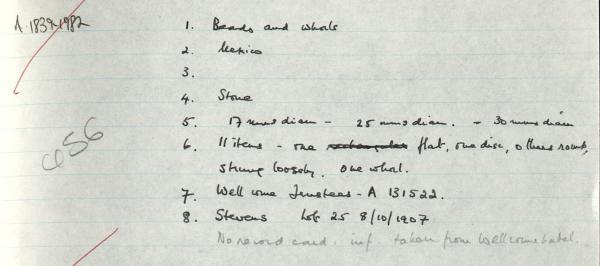 A.1839-1982
1. Beads and whorls
2. Mexico
3.
4. Stone
5. 17 mms diam - 25 mms diam. - 30 mms diam
6. 11 items - one rectangular flat, one disc, others round,
strung loosely. One whorl.
656
7. Wellcome Trustees - A 131522.
8. Stevens Lot 25 8/10/1907
No record card. inf. taken from Wellcome label.